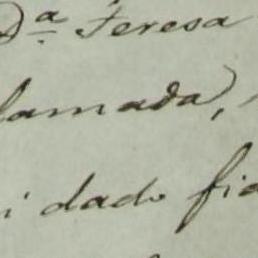 Dª Teresa
lamada,
i dado fia